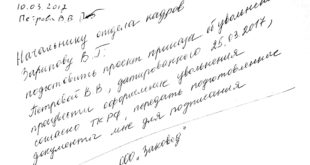 10.03.2017
Петрова В.В.
Начальнику отдела кадров
Зарипову В.Г.
подготовить проект приказа об увольнении
Петровой В.В., датированного 25.03.2017,
процвести оформление увольнения
согласно ТК РФ, передать подготовленные
документы мне для подписания
ООО "Заковод"